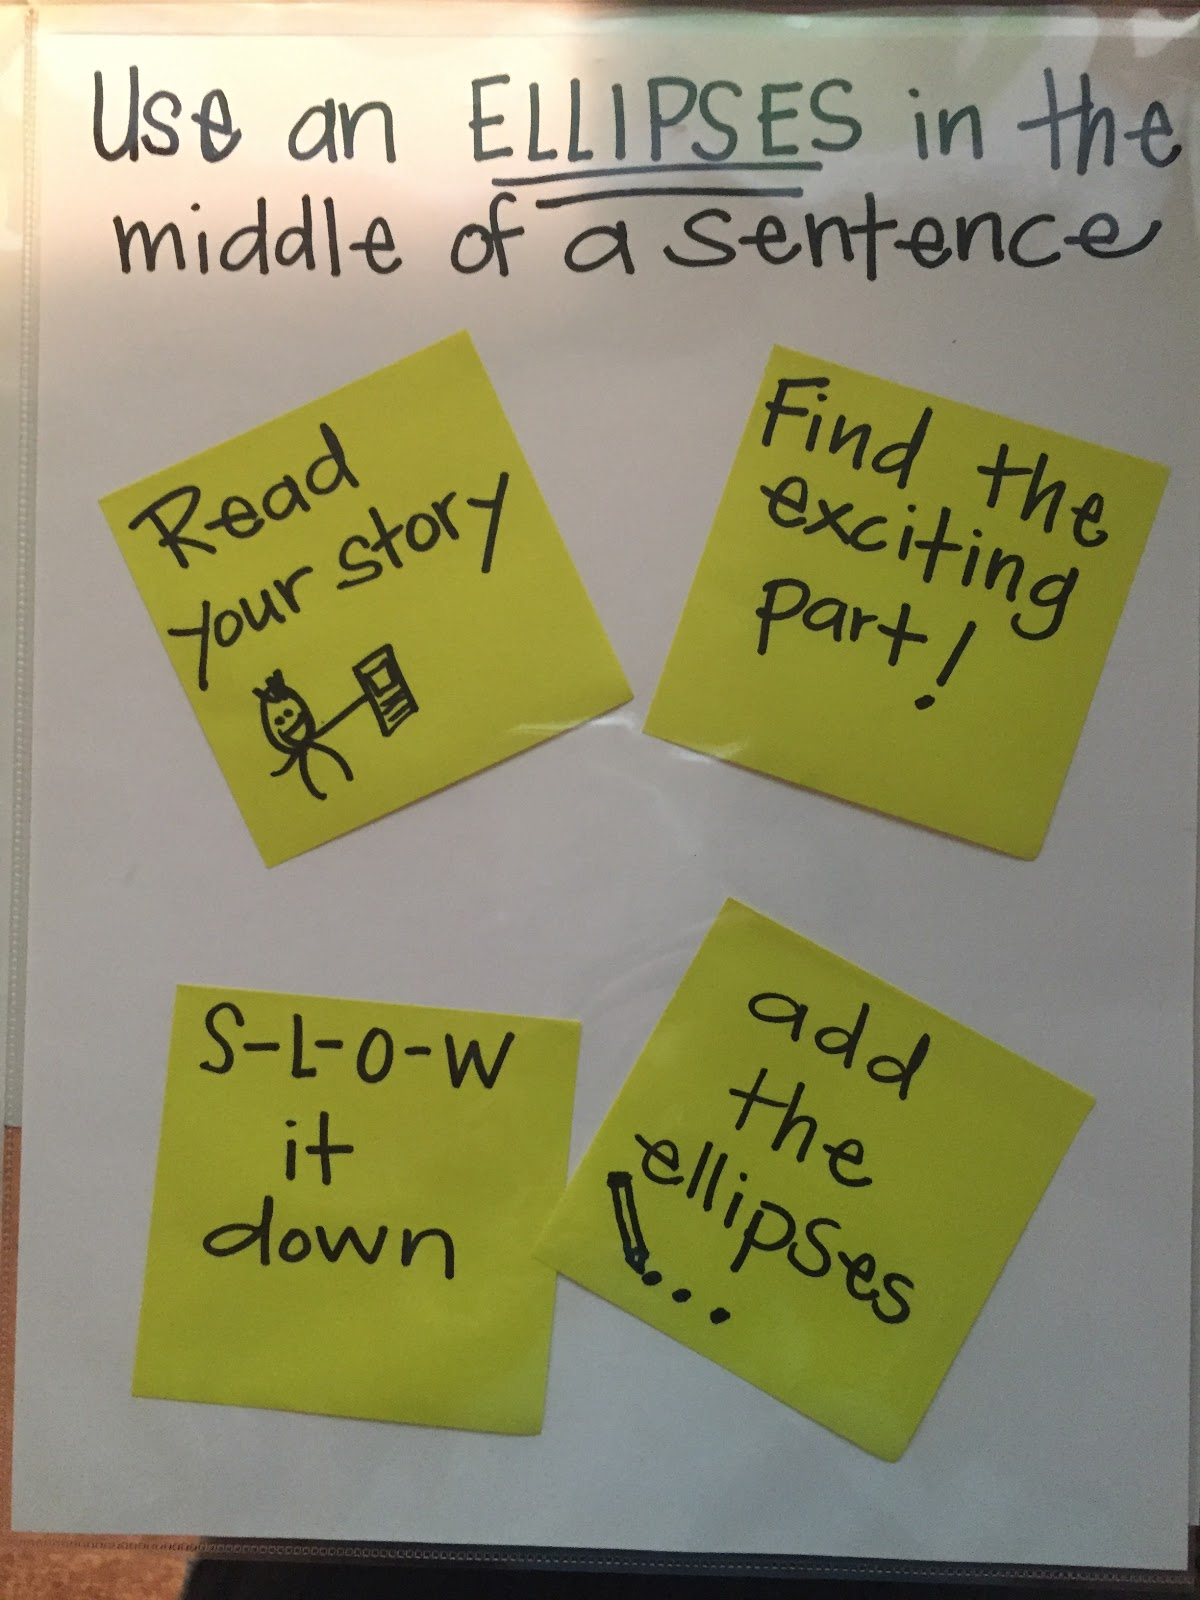 Use an ELLIPSES in the
middle of a sentence
Read
your story
Find the
exciting
part!
S-L-O-W
it
down
add
the
ellipses
...